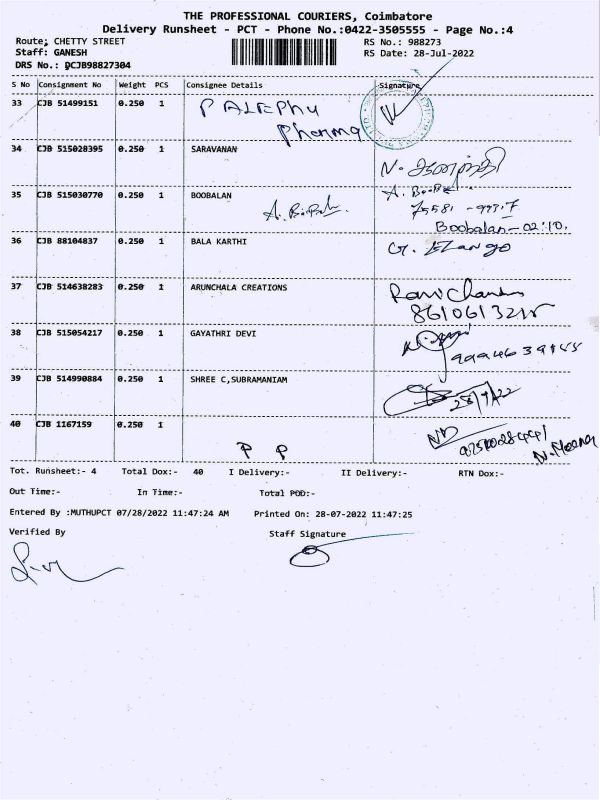 THE PROFESSIONAL COURIERS, Coimbatore
Delivery Runsheet - PCT - Phone No.:0422-3505555 - Page No.:4
Route: CHETTY STREET RS No.: 988273
Staff: GANESH RS Date: 28-Jul-2022
DRS No.: DCJB98827304
S No Consignment No Weight PCS Consignee Details Signature
33 CJB 51499151 0.250 1 P ALEPHY
Pharma
34 CJB 515028395 0.250 1 SARAVANAN
N. ஆனந்தி
35 CJB 515030770 0.250 1 BOOBALAN
Boobalan-02:10.
36 CJB 88104837 0.250 1 BALA KARTHI G. ELango
37 CJB 514638283 0.250 1 ARUNCHALA CREATIONS Ravi Chandran
38 CJB 515054217 0.250 1 GAYATHRI DEVI
39 CJB 514990884 0.250 1 SHREE C,SUBRAMANIAM
28/7/22
40 CJB 1167159 0.250 1
P P N. Meena
Tot. Runsheet:- 4 Total Dox:- 40 I Delivery:- II Delivery:- RTN Dox:-
Out Time:- In Time:- Total POD:-
Entered By :MUTHUPCT 07/28/2022 11:47:24 AM Printed On: 28-07-2022 11:47:25
Verified By Staff Signature